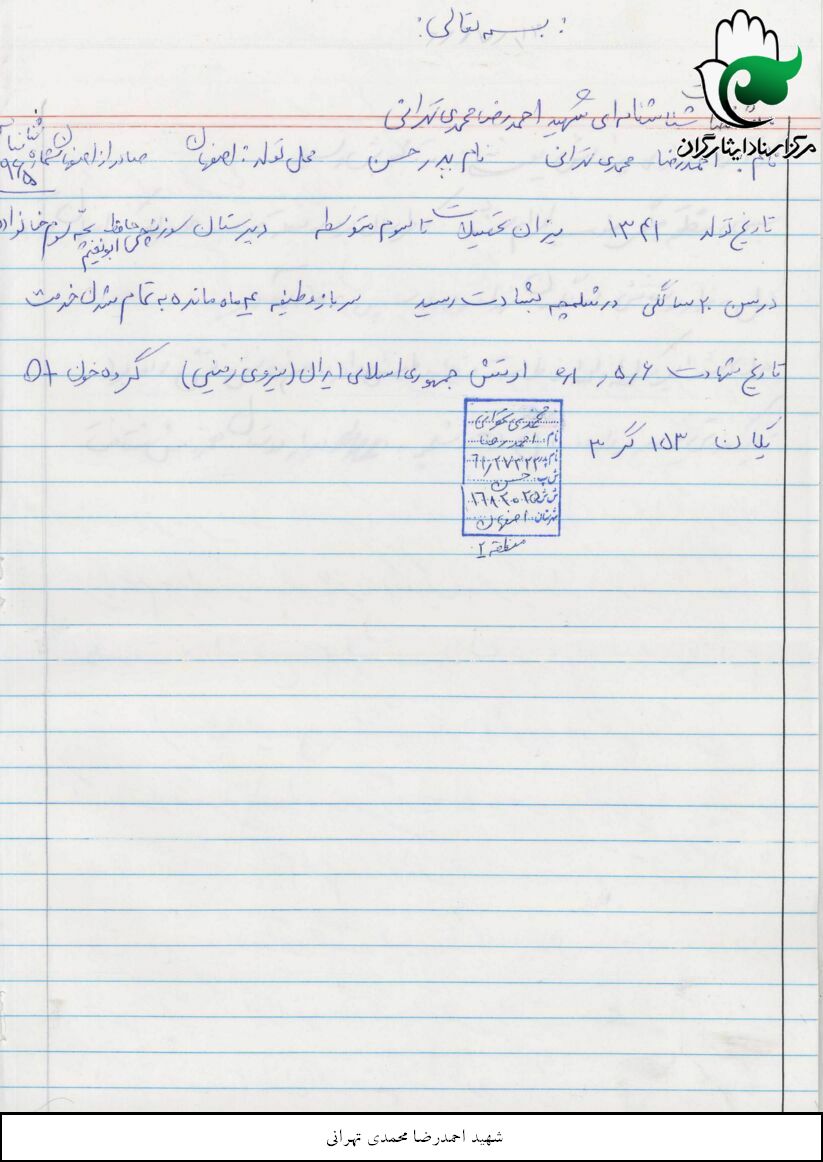 : بسمه تعالی :
مرکز اسناد ایثارگران
مشخصات شناسنامه‌ای شهید احمدرضا محمدی تهرانی
نام : احمدرضا محمدی تهرانی نام پدر حسن محل تولد : اصفهان صادر از اصفهان شماره ۹۶۵
تاریخ تولد ۱۳۴۱ میزان تحصیلات تا سوم متوسطه دبیرستان حافظ ابونعیم بچه سوم خانواده
در سن ۲۰ سالگی در شلمچه بشهادت رسید سرباز وظیفه ۴ ماه مانده به تمام شدن خدمت
تاریخ شهادت ارتش جمهوری اسلامی ایران (نیروی زمینی) گروه خون O+
یگان ۱۵۳ گر ۳
محمدی تهرانی
نام: احمدرضا
نام پدر: حسن
شهرستان: اصفهان
منطقه ۲
شهید احمدرضا محمدی تهرانی